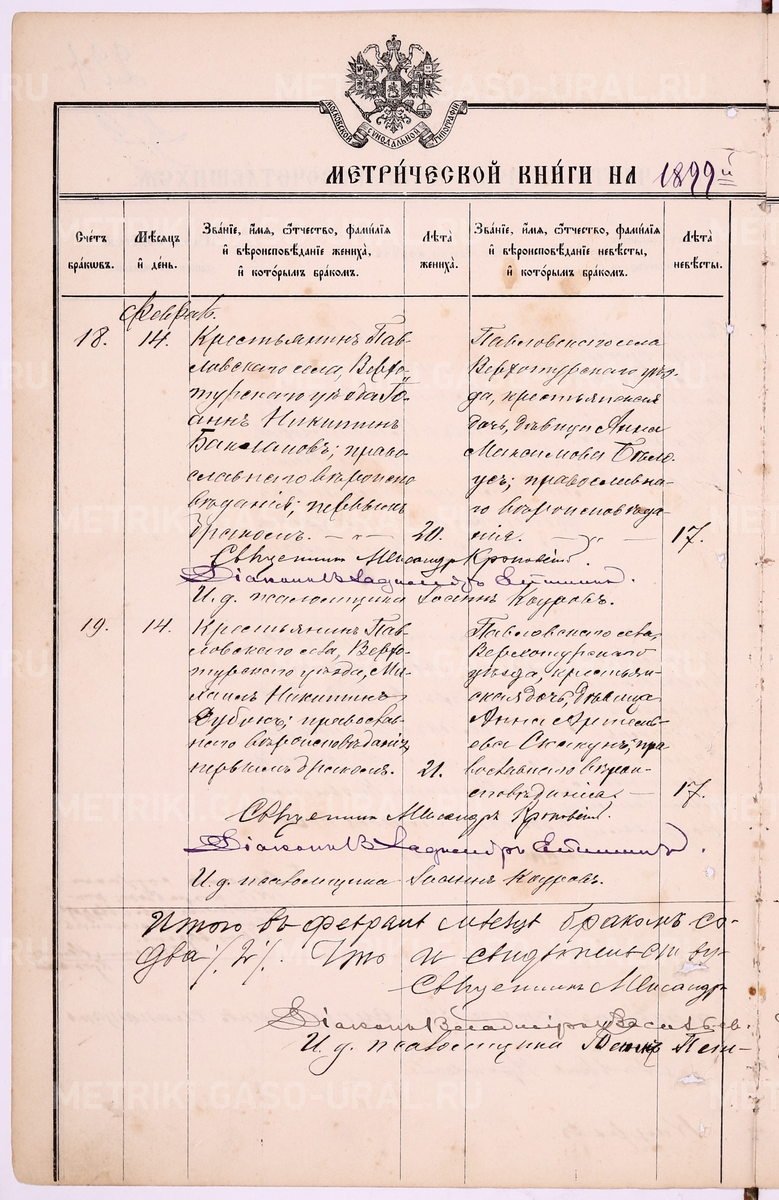 МОСКОВСКОЙ СѴНОДАЛЬНОЙ ТИПОГРАФІИ
МЕТРИ́ЧЕСКОЙ КНИ́ГИ НА 1899й
Сче́тъ бра́кѡвъ.
Мѣ́сѧцъ и҆ де́нь.
Зва́нїе, и҆́мѧ, ѻ҆́тчество, фами́лїѧ и҆ вѣроисповѣ́данїе жениха̀, и҆ кото́рымъ бра́комъ.
Лѣ́та жениха̀.
Зва́нїе, и҆́мѧ, ѻ҆́тчество, фами́лїѧ и҆ вѣроисповѣ́данїе невѣ́сты, и҆ кото́рымъ бра́комъ.
Лѣ́та невѣ́сты.
Феврал.
18.
14.
Крестьянинъ Пав-
ловскаго села, Верхо-
турскаго уѣзда Iо-
аннъ Никитинъ
Баклановъ; право
славнаго вѣроиспо
вѣданія; первымъ
бракомъ. — „ —
20.
Павловскаго села
Верхотурскаго уѣз-
да, крестьянская
дочь, дѣвица Анна
Максимова Бѣло-
усъ; православна-
го вѣроисповѣда
нія. — „ —
17.
Священникъ Александръ
Діаконъ Владиміръ
И. д. псаломщика Іоаннъ Кауровъ.
19.
14.
Крестьянинъ Пав-
ловскаго села, Верхо-
турскаго уѣзда, Ми-
хаилъ Никитинъ
Дубокъ; православ-
наго вѣроисповѣданія,
первымъ бракомъ.
21.
Павловскаго села,
Верхотурскаго
уѣзда, крестьян-
ская дочь, дѣвица
Анна Артемь-
ева Скакунъ; пра
вославнаго вѣроис-
повѣданія —
17.
Священникъ Александръ
Діаконъ Владиміръ
И. д. псаломщика Іоаннъ Кауровъ.
Итого въ февралѣ мѣсяцѣ бракомъ со-
два % 2 %. Что и свидѣтельству-
Священникъ Александръ
Діаконъ Владиміръ
И. д. псаломщика
METRIKI.GASO-URAL.RU